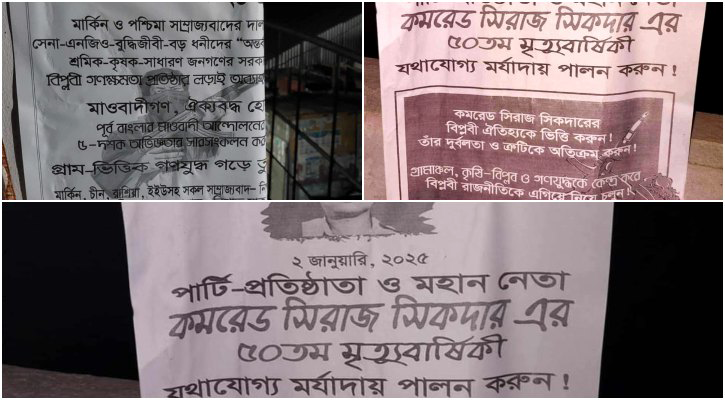 মার্কিন ও পশ্চিমা সাম্রাজ্যবাদের দাল
সেনা-এনজিও-বুদ্ধিজীবী-বড় ধনীদের
শ্রমিক-কৃষক-সাধারণ জনগণের সরকা
বিপ্লবী গণক্ষমতা প্রতিষ্ঠার লড়াই
মাওবাদীগণ, ঐক্যবদ্ধ হো
পূর্ব বাংলার মাওবাদী আন্দোলনের
৫-দশক অভিজ্ঞতার সারসংকলন করে
গ্রাম-ভিত্তিক গণযুদ্ধ গড়ে তু
মার্কিন, চীন, রাশিয়া, ইইউসহ সকল সাম্রাজ্যবাদ-
কমরেড সিরাজ সিকদার এর
৫০তম মৃত্যুবার্ষিকী
যথাযোগ্য মর্যাদায় পালন করুন!
কমরেড সিরাজ সিকদারের
বিপ্লবী ঐতিহ্যকে ভিত্তি করুন!
তাঁর দুর্বলতা ও ত্রুটিকে অতিক্রম করুন!
গ্রামাঞ্চল, কৃষি-বিপ্লব ও গণযুদ্ধকে কেন্দ্র করে
বিপ্লবী রাজনীতিকে এগিয়ে নিয়ে চলুন!
২ জানুয়ারি, ২০২৫
পার্টি-প্রতিষ্ঠাতা ও মহান নেতা
কমরেড সিরাজ সিকদার এর
৫০তম মৃত্যুবার্ষিকী
যথাযোগ্য মর্যাদায় পালন করুন!